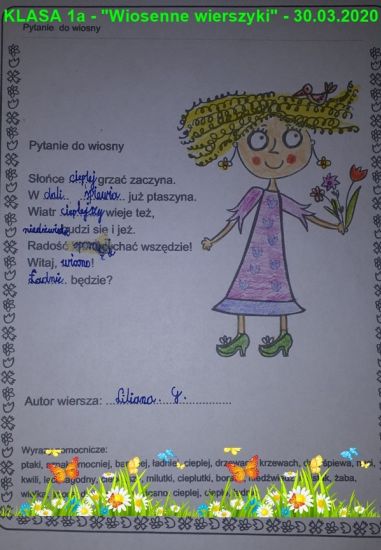 KLASA 1a - "Wiosenne wierszyki" - 30.03.2020
Pytanie do wiosny
Pytanie do wiosny
Słońce cieplej grzać zaczyna.
W dali śpiewa już ptaszyna.
Wiatr cieplejszy wieje też,
niedźwiedź budzi się i jeż.
Radość słychać wszędzie!
Witaj, wiosno!
Ładnie będzie?
Autor wiersza: Liliana
Wyrazy pomocnicze:
ptaki, mocniej, ładnie, cieplej, krzewach, śpiewa,
kwili, milutki, cieplutki, żaba,
cieplej,